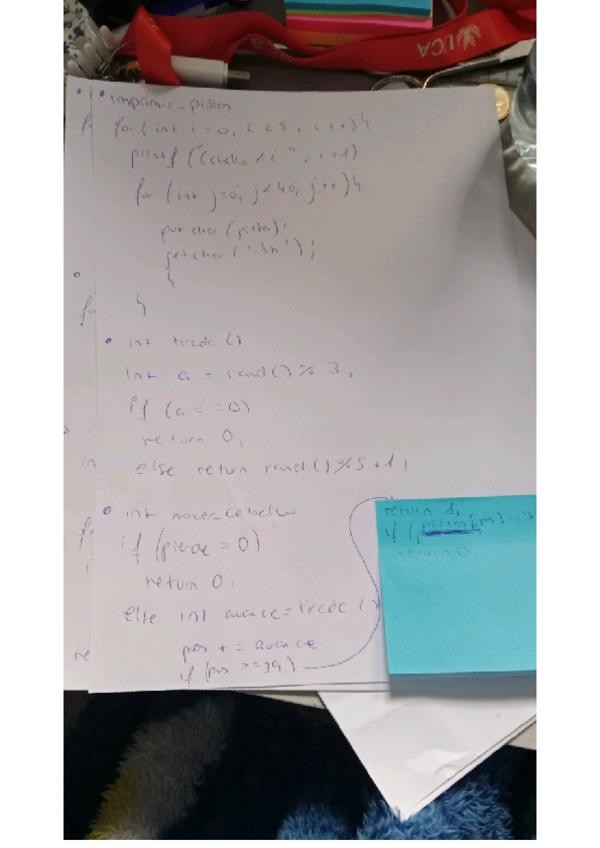 UCA
imprimir_pistas
for (int i=0, i<5, i++){
printf ("Cebello %i ", i+1)
for (int j=0; j<40; j++){
putchar (pista);
getchar ('\n');
}
}
int tirada ()
int a = rand() % 3,
if (a ==0)
return 0,
else return rand()%5+1;
int mover_cebello
if (pierde = 0)
return 0;
else int avance=tirada ()
pos += avance
if (pos >=39)
return 1,
if (pistas[pos]
return 0,